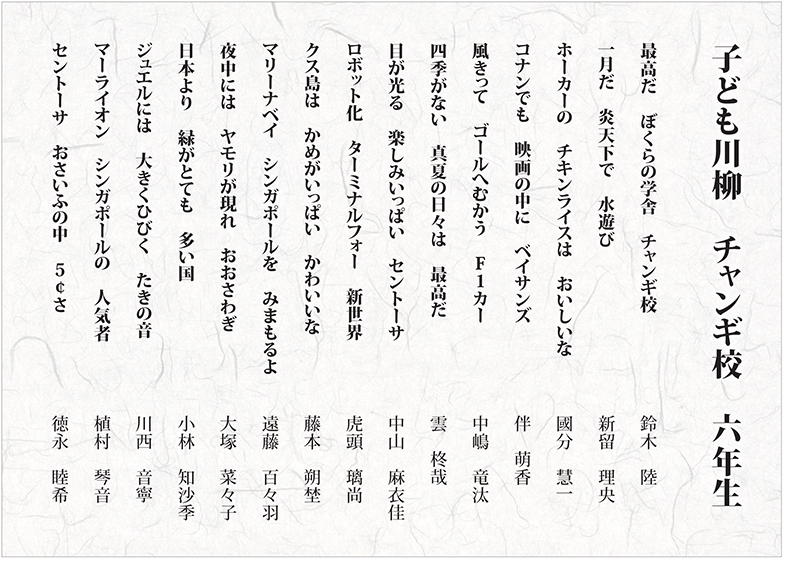 子ども川柳　チャンギ校　六年生
最高だ　ぼくらの学舎　チャンギ校　鈴木　陸
一月だ　炎天下で　水遊び　新留　理央
ホーカーの　チキンライスは　おいしいな　國分　慧一
コナンでも　映画の中に　ベイサンズ　伴　萌香
風きって　ゴールへむかう　F1カー　中嶋　竜汰
四季がない　真夏の日々は　最高だ　雲　柊哉
目が光る　楽しみいっぱい　セントーサ　中山　麻衣佳
ロボット化　ターミナルフォー　新世界　虎頭　璃尚
クス島は　かめがいっぱい　かわいいな　藤本　朔埜
マリーナベイ　シンガポールを　みまもるよ　遠藤　百々羽
夜中には　ヤモリが現れ　おおさわぎ　大塚　菜々子
日本より　緑がとても　多い国　小林　知沙季
ジュエルには　大きくひびく　たきの音　川西　音寧
マーライオン　シンガポールの　人気者　植村　琴音
セントーサ　おさいふの中　5¢さ　徳永　睦希